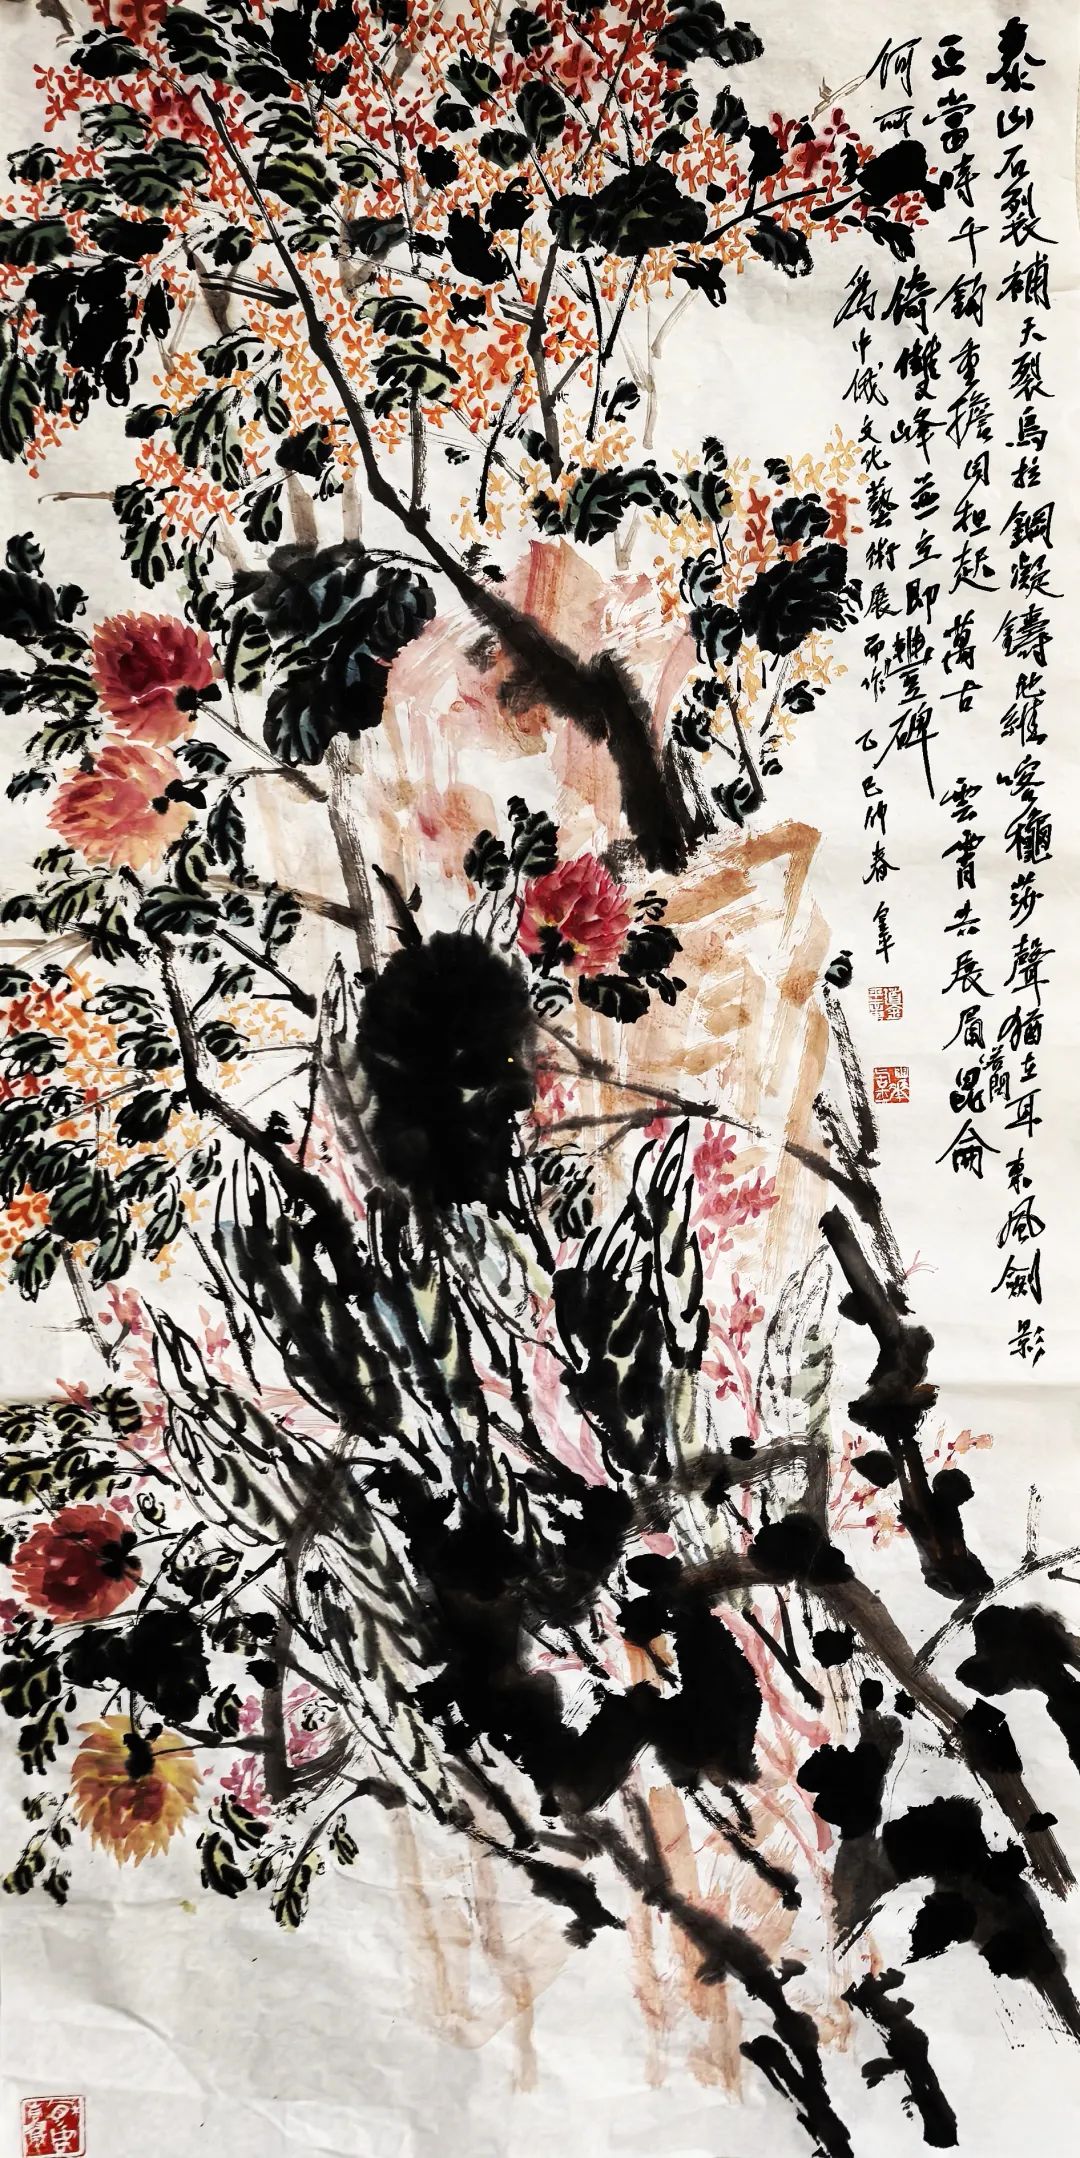 泰山石裂補天裂烏拉鋼凝鑄此維喀龝莎聲猶在耳東風劍影
正當時千鈞重擔同担起萬古雲霄共展眉若問昆侖
何所倚雙峰並立即豐碑
爲中俄文化藝術展而作乙巳仲春